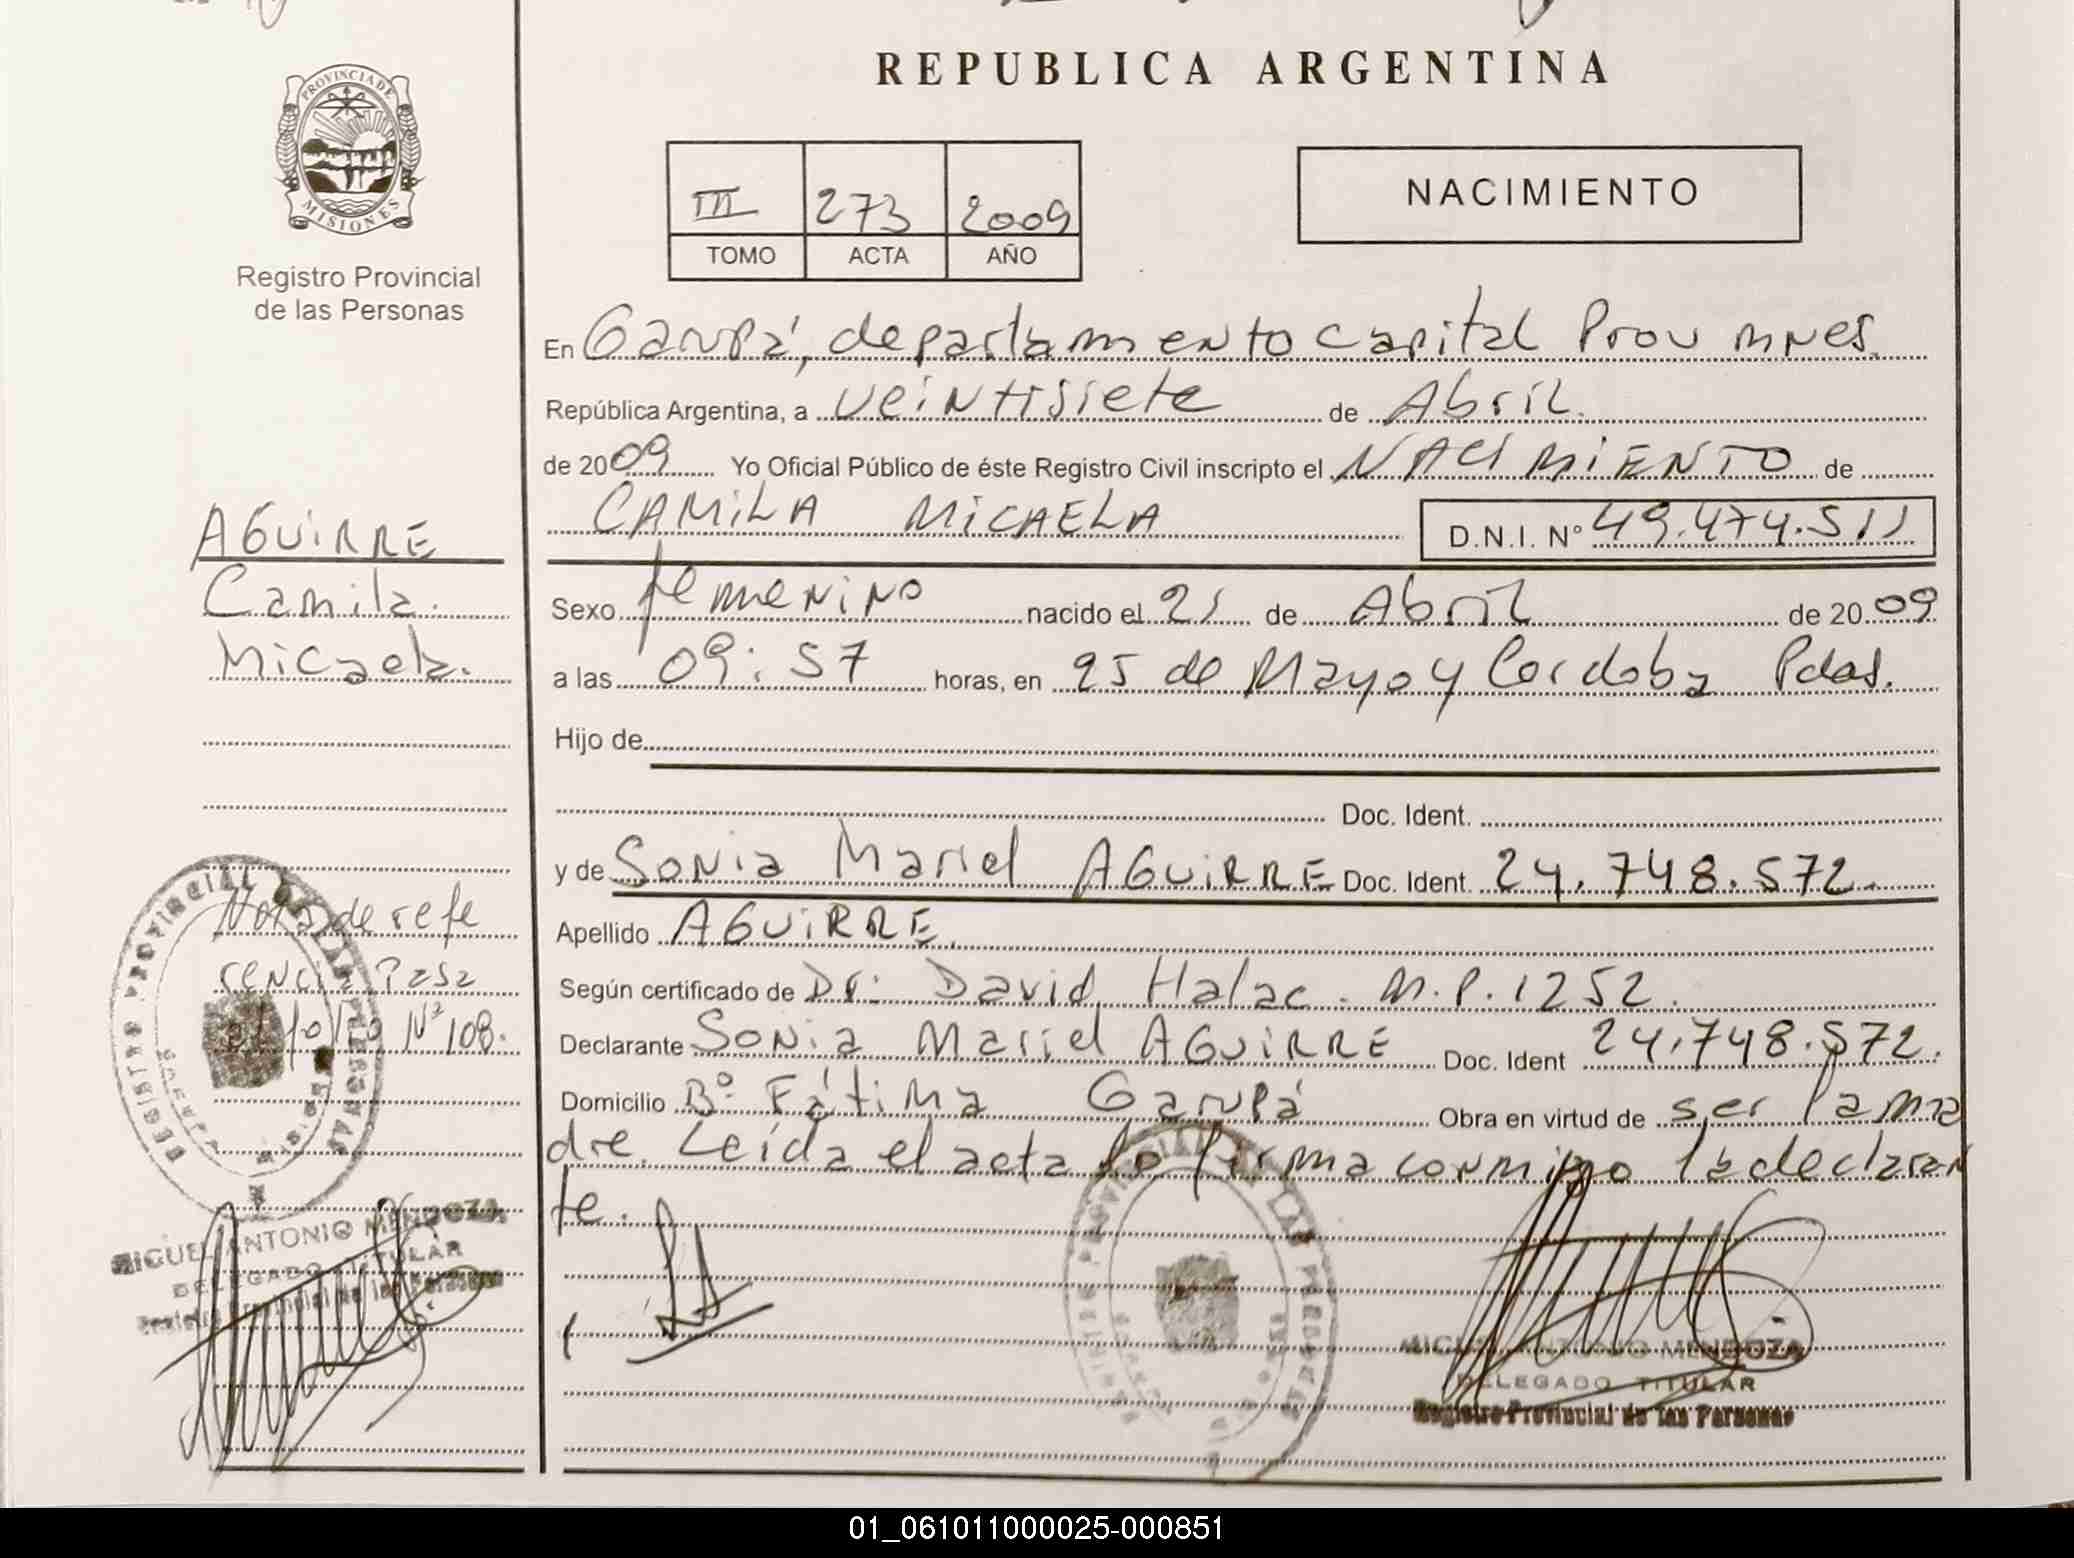 PROVINCIA DE
MISIONES
Registro Provincial
de las Personas
REPUBLICA ARGENTINA
III 273 2009
TOMO ACTA AÑO
NACIMIENTO
En Garupá, departamento Capital Prov mnes.
República Argentina, a veintisiete de Abril.
de 2009 Yo Oficial Público de éste Registro Civil inscripto el NACIMIENTO de
CAMILA MICAELA D.N.I. N° 49.474.511
Sexo femenino nacido el 21 de Abril de 2009
a las 09:57 horas, en 25 de Mayo y Cordoba Pdas.
Hijo de
Doc. Ident.
y de Sonia Mariel AGUIRRE Doc. Ident. 24.748.572.
Apellido AGUIRRE.
Según certificado de Dr: David Halac. M.P. 1252.
Declarante Sonia Mariel AGUIRRE Doc. Ident 24.748.572.
Domicilio B° Fátima Garupá Obra en virtud de ser la ma
dre. Leída el acta lo firma conmigo la declaran
te.
MIGUEL ANTONIO MENDOZA
DELEGADO TITULAR
Registro Provincial de las Personas
AGUIRRE
Camila.
Micaela.
Nota de refe
rencia Pasa
el folio N° 108.
REGISTRO PROVINCIAL DE LAS PERSONAS
MIGUEL ANTONIO MENDOZA
DELEGADO TITULAR
Registro Provincial de las Personas
01_061011000025-000851